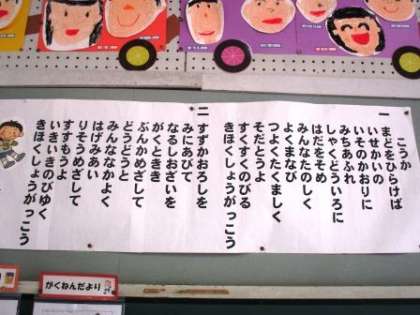 こうか
一
まどをひらけば
いせかいの
いそのかおりに
みちあふれ
しゃくどういろに
はだをそめ
みんなたのしく
よくまなび
つよくたくましく
そだとうよ
すくすくのびる
きほくしょうがっこう
二
すずかおろしを
みにあびて
なるしおざいを
がくときき
ぶんかめざして
どうどうと
みんななかよく
はげみあい
りそうめざして
すすもうよ
いきいきのびゆく
きほくしょうがっこう
がくねんだより